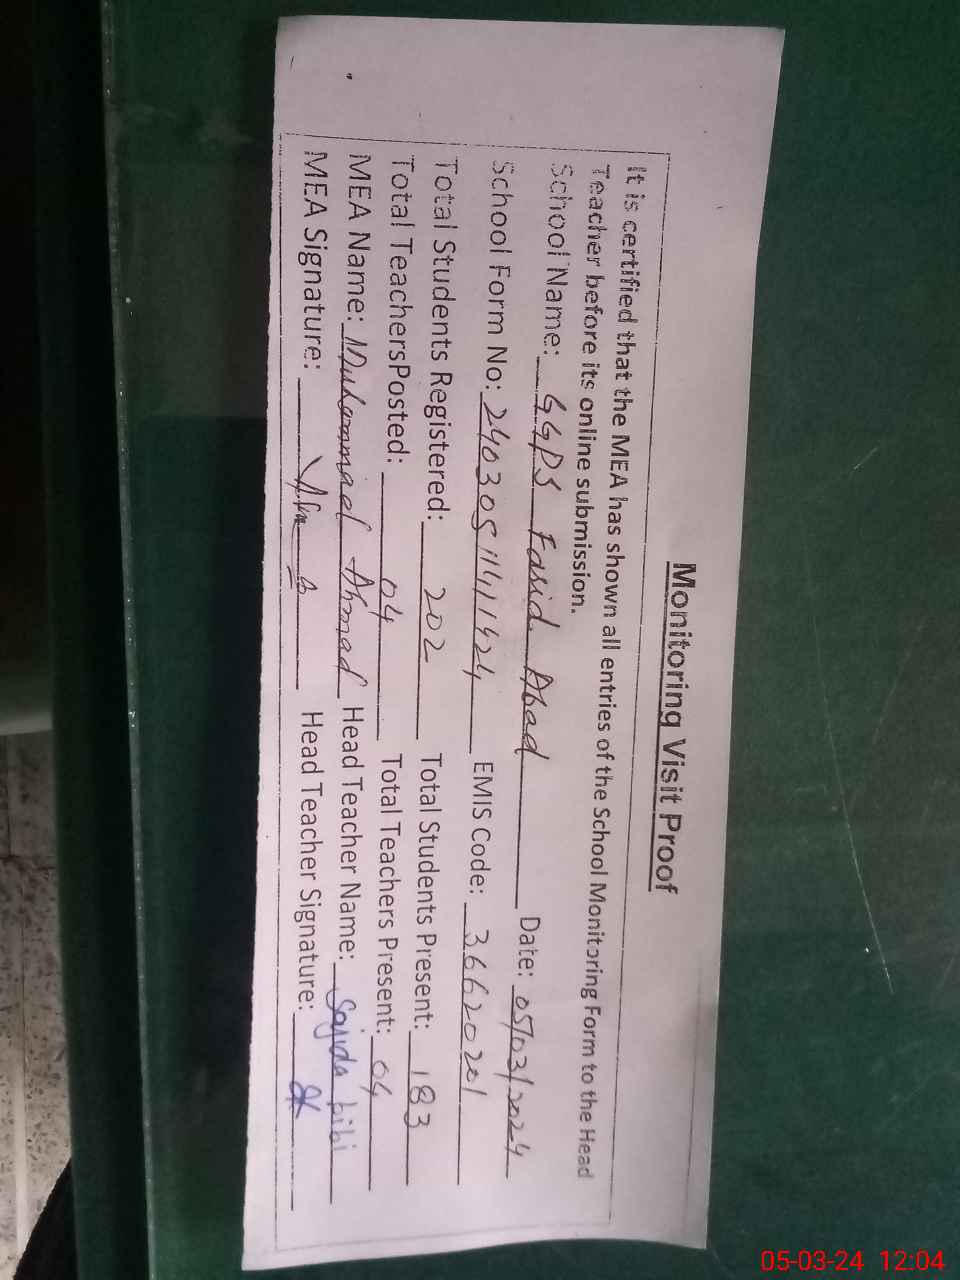 Monitoring Visit Proof
It is certified that the MEA has shown all entries of the School Monitoring Form to the Head
Teacher before its online submission.
School Name: GGPS Farid Abad Date: 05/03/2024
School Form No: 240305114111424 EMIS Code: 36620201
Total Students Registered: 202 Total Students Present: 183
Total TeachersPosted: 04 Total Teachers Present: 04
MEA Name: Muhammad Ahmad Head Teacher Name: Sajida bibi
MEA Signature: Head Teacher Signature:
05-03-24 12:04